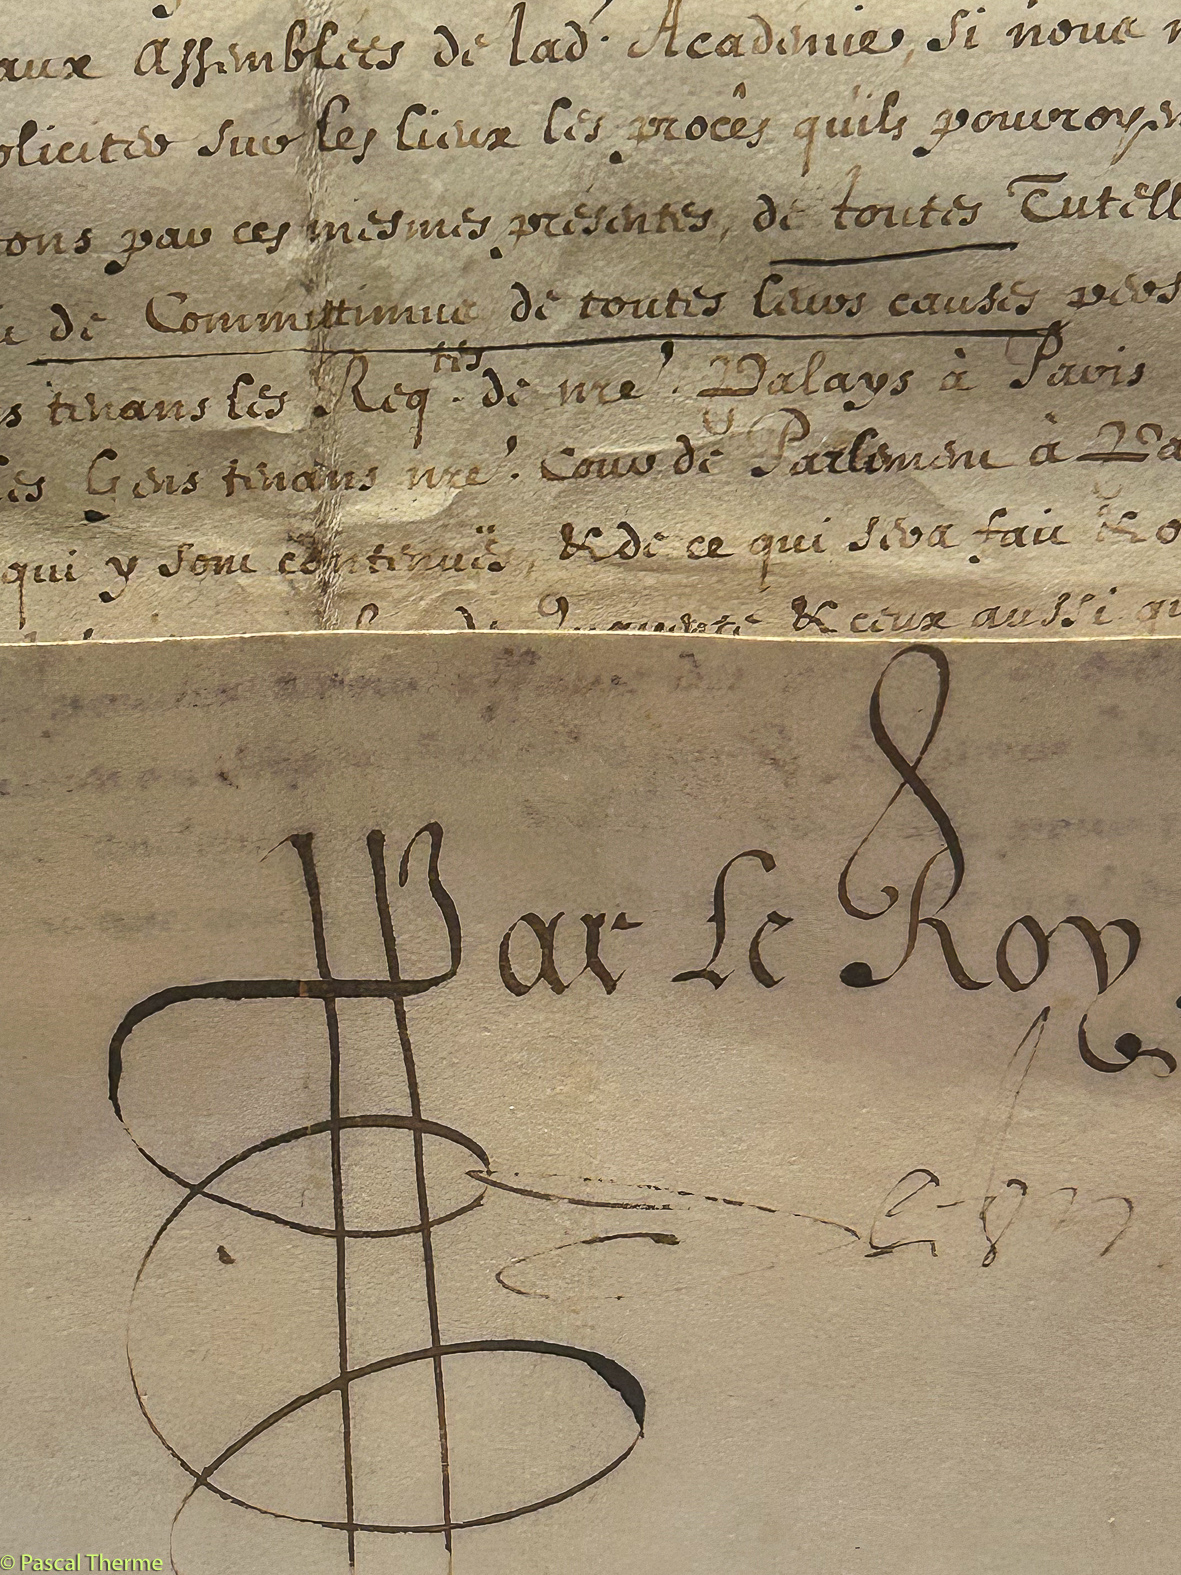 aux Assemblées de lad. Académie, si nous n
oliciter sur les lieux les procês qu'ils pourroyen
tons par ces mesmes présentes, de toutes Tutell
de Committimus de toutes leurs causes pers
s tenans les Req.tes de nre. Palays à Paris
les Gens tenans nre. Cour de Parlement à Pa
qui y sont contenuës, & de ce qui sera fait & o
& ceux aussi qu
Par Le Roy
© Pascal Therme